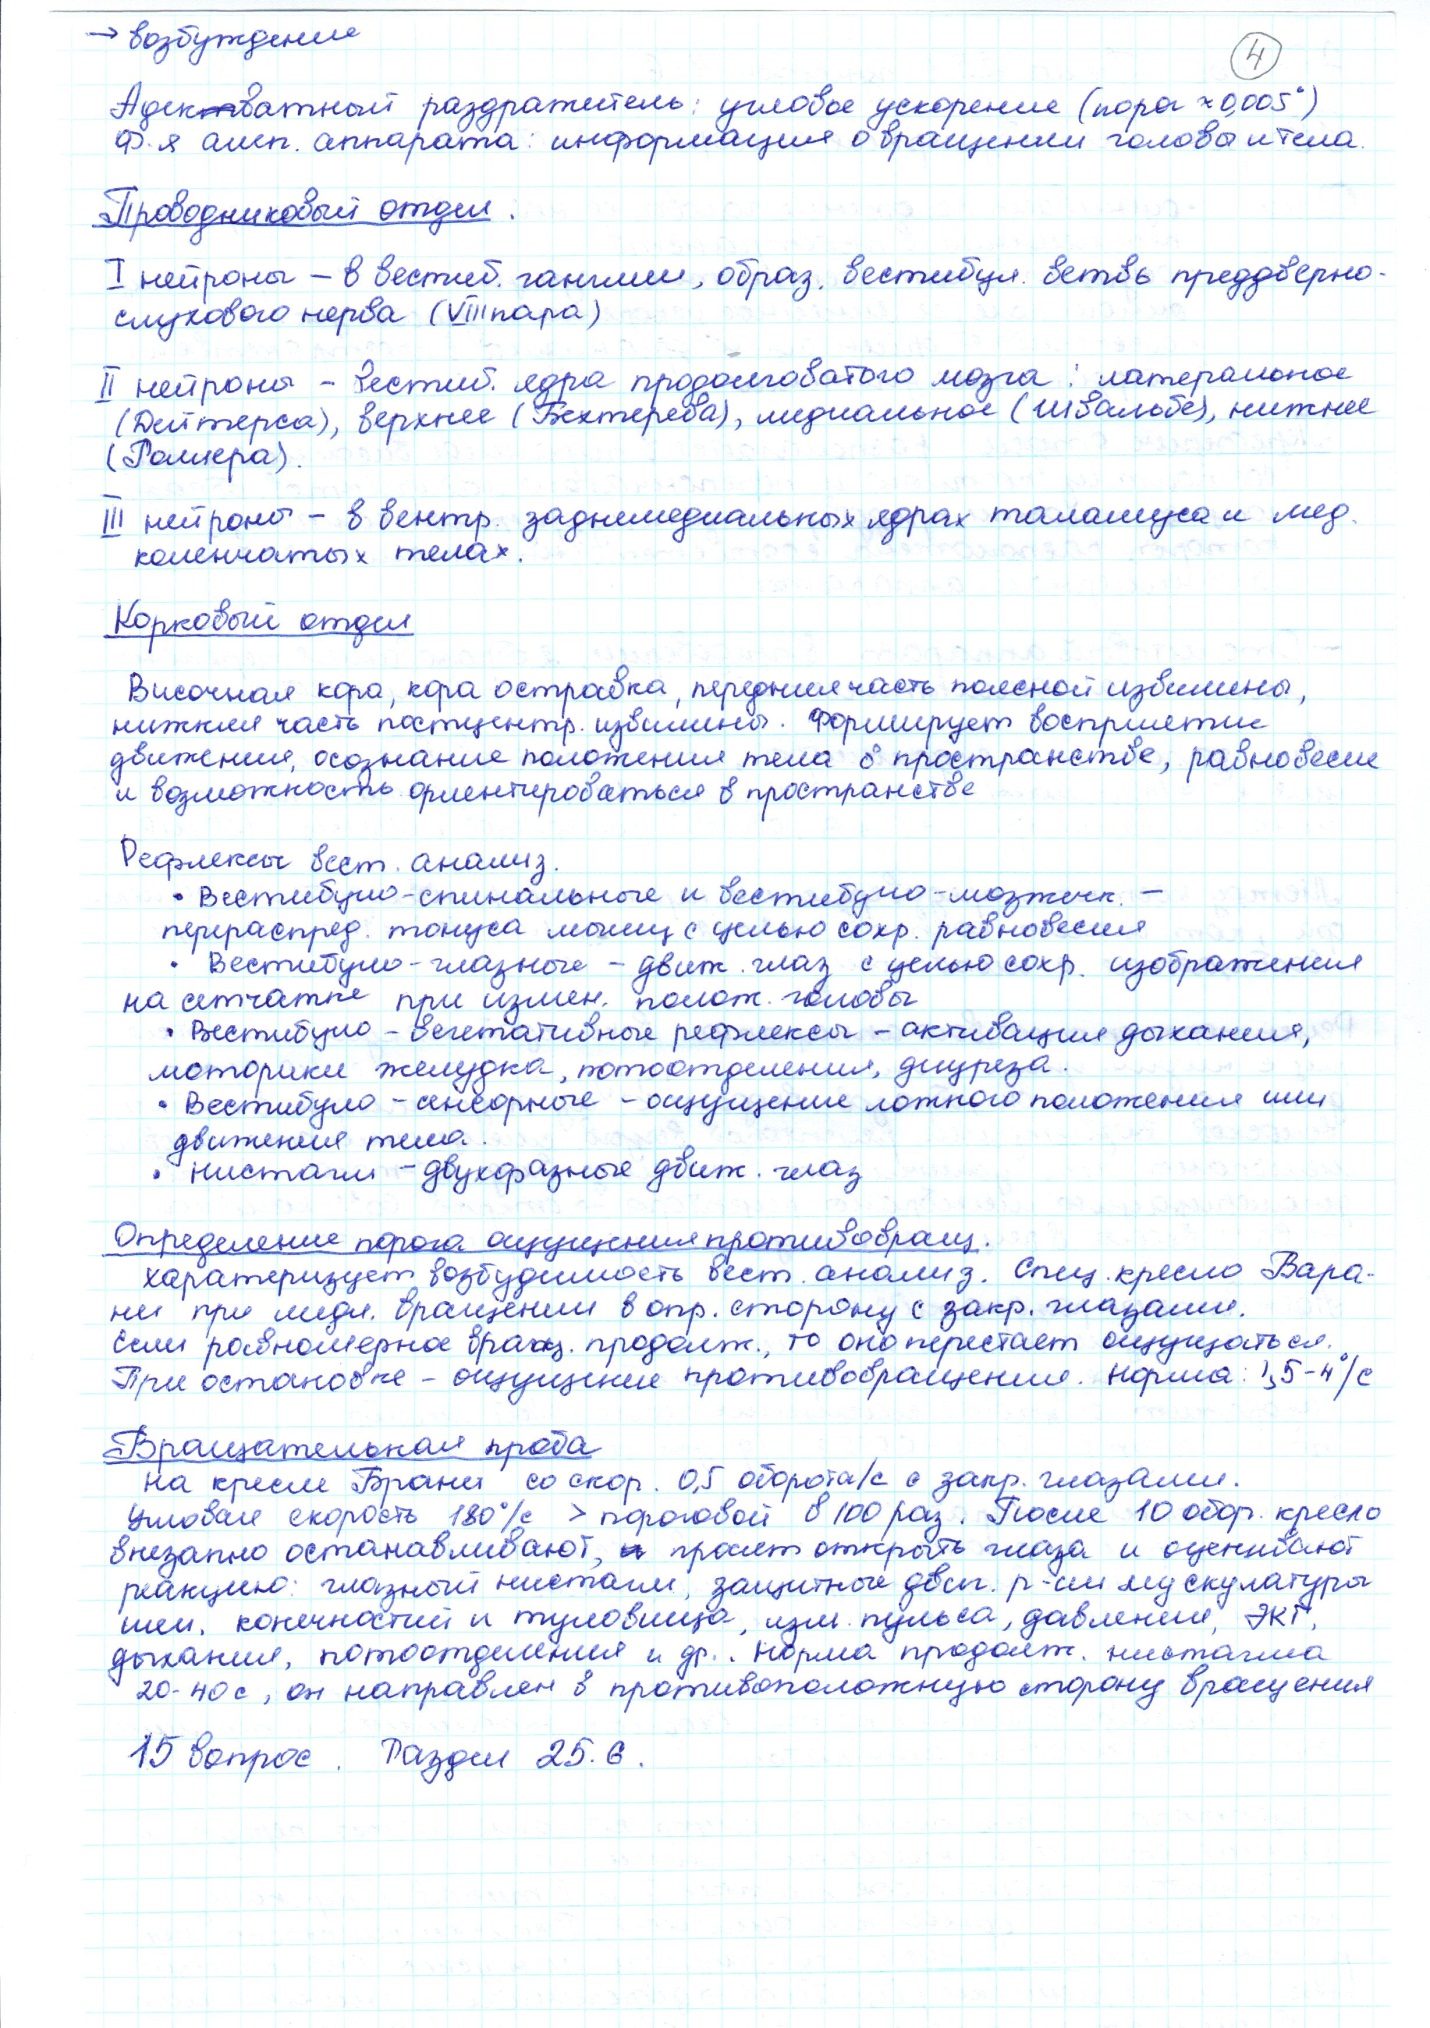 → возбуждение
4
Адекватный раздражитель: угловое ускорение (порог ≈ 0,005°)
Ф-я амп. аппарата: информация о вращении головы и тела.
Проводниковый отдел.
I нейроны – в вестиб. ганглии, образ. вестибул. ветвь преддверно-
слухового нерва (VIII пара)
II нейроны – вестиб. ядра продолговатого мозга: латеральное
(Дейтерса), верхнее (Бехтерева), медиальное (Швальбе), нижнее
(Роллера).
III нейроны – в вентр. заднемедиальных ядрах таламуса и мед.
коленчатых телах.
Корковый отдел
Височная кора, кора островка, передняя часть поясной извилины,
нижняя часть постцентр. извилины. Формирует восприятие
движения, осознание положения тела в пространстве, равновесие
и возможность ориентироваться в пространстве
Рефлексы вест. анализ.
• Вестибуло-спинальные и вестибуло-мозжечк. –
перераспред. тонуса мышц с целью сохр. равновесия
• Вестибуло-глазные – движ. глаз с целью сохр. изображения
на сетчатке при измен. полож. головы
• Вестибуло-вегетативные рефлексы – активация дыхания,
моторики желудка, потоотделения, диуреза.
• Вестибуло-сенсорные – ощущение ложного положения или
движения тела.
• Нистагм – двухфазные движ. глаз
Определение порога ощущения противовращ.
Характеризует возбудимость вест. анализ. Спец. кресло Бара-
ни при медл. вращении в опр. сторону с закр. глазами.
Если равномерное вращ. продолж., то оно перестает ощущаться.
При остановке – ощущение противовращения. Норма: 1,5-4°/с
Вращательная проба
На кресле Брани со скор. 0,5 оборота/с с закр. глазами.
Угловая скорость 180°/с > пороговой в 100 раз. После 10 обор. кресло
внезапно останавливают, просят открыть глаза и оценивают
реакцию: глазный нистагм, защитные двиг. р-ии мускулатуры
шеи, конечностей и туловища, изм. пульса, давления, ЭКГ,
дыхания, потоотделения и др.. Норма продолж. нистагма
20-40с, он направлен в противоположную сторону вращения
15 вопрос. Раздел 25.6.